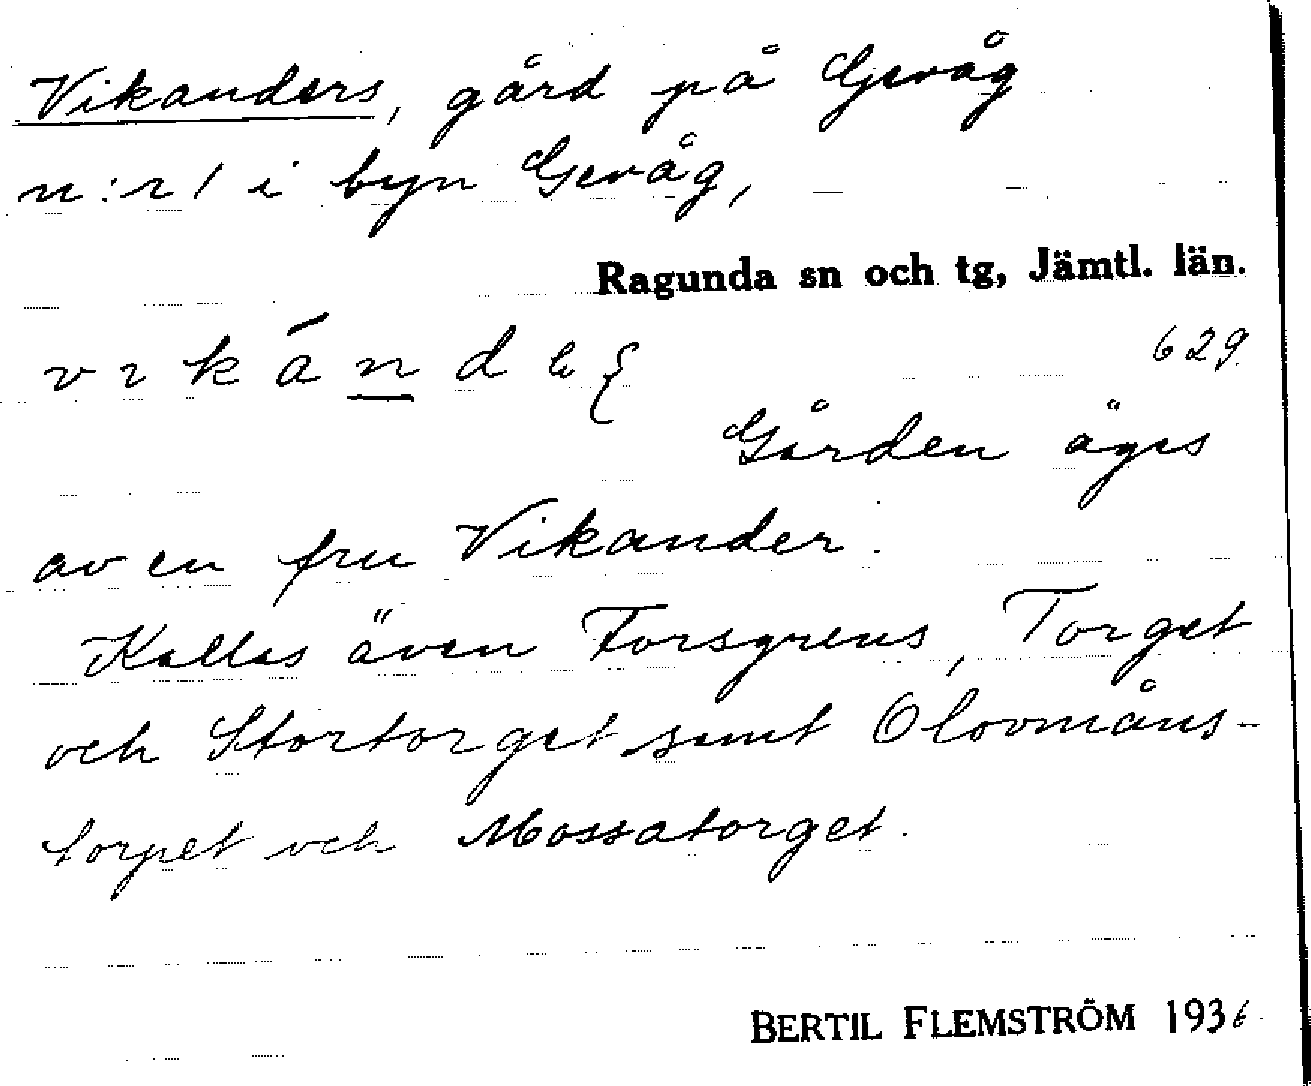 Vikanders, gård på Gevåg
n:r 1 i byn Gevåg,
Ragunda sn och tg, Jämtl. län.
629
Gården äges
av en fru Vikander.
Kallas även Forsgrens, Torget
och Stortorget samt Olovmåns-
torpet och Mossatorget.
BERTIL FLEMSTRÖM 1936